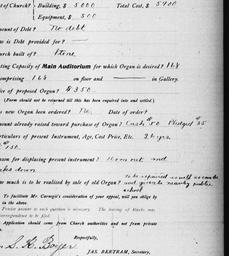 of Church? Building, $ 5000 Total Cost, $ 5900
Equipment, $ 500
Amount of Debt? No debt
is Debt provided for?
Church built of? Stone
Seating Capacity of Main Auditorium for which Organ is desired? 164
comprising 164 on floor and in Gallery.
Price of proposed Organ? $ 350
(Form should not be returned till this has been enquired into and settled.)
a new Organ been ordered? No. Date of order?
amount already raised toward purchase of Organ? Cash 50 Pledged 25
Particulars of present Instrument, Age, Cost Price, Etc.
150
Reason for displacing present Instrument? Worn out and
down
much is to be realized by sale of old Organ?
and nearby public
school
To facilitate Mr. Carnegie's consideration of your appeal, will you oblige by
in the above.
Precise answer to each question is necessary. The leaving of blanks may
correspondence to be filed.
Application should come from Church authorities and not from private
Respectfully,
JAS. BERTRAM, Secretary.